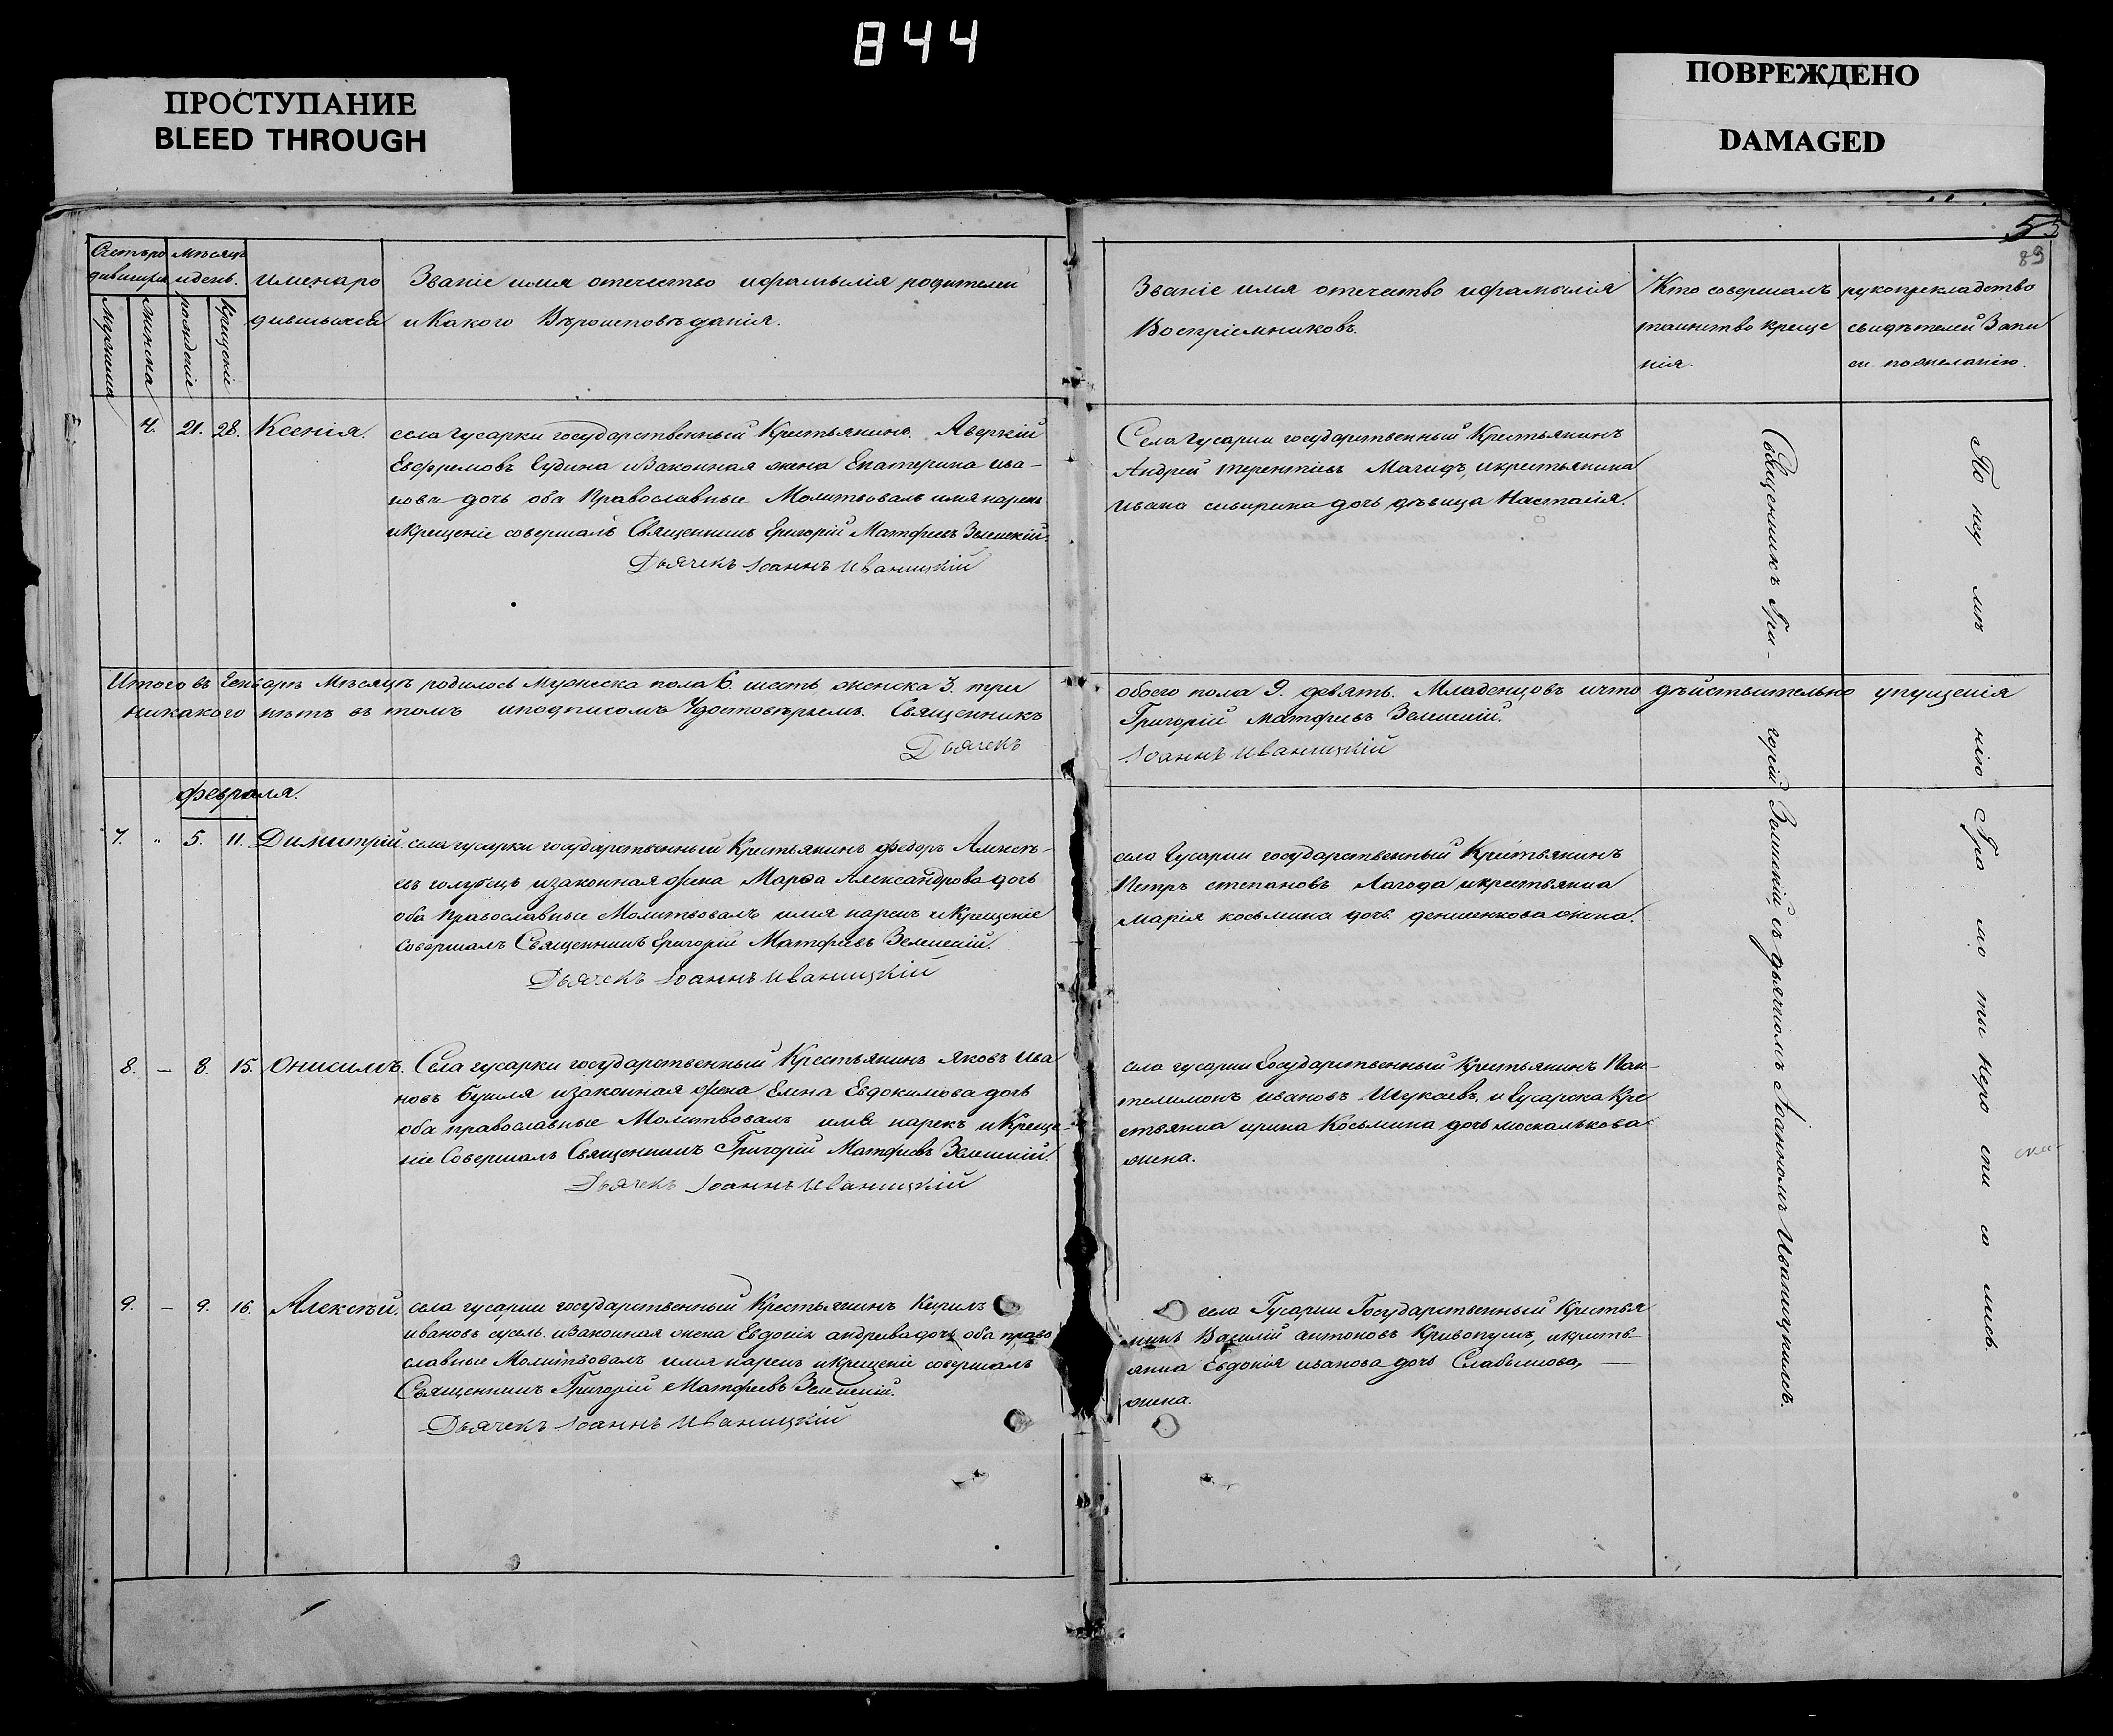 844
ПРОСТУПАНИЕ
BLEED THROUGH
ПОВРЕЖДЕНО
DAMAGED
55
89
Счетъ ро
дившихся
мѣсяцъ
и день.
мужеска
женска
рожденіе
крещеніе
имена ро
дившихся
Званіе имя отечество и фамилія родителей
и Какого Вѣроисповѣданія.
Званіе имя отечество и фамилія
Воспріемниковъ.
Кто совершалъ
таинство креще
нія.
рукоприкладство
свидѣтелей Запи
си по желанію.
4. 21. 28. Ксенія.
села гусарки государственный Крестьянинъ Аверкій
Евфремовъ и Законная жена Екатерина ива-
нова дочь оба Православные Молитвовалъ имя нарекъ
и Крещеніе совершалъ Священникъ Григорій Матфеевъ
Дьячекъ Іоаннъ Иваницкій
Села гусарки государственный Крестьянинъ
Андрей терентіевъ и крестьянина
ивана дочь дѣвица Настасія.
Итого въ Генваръ Мѣсяцъ родилось Мужеска пола 6. шесть женска 3. три
обоего пола 9. девять. Младенцовъ и что дѣйствительно упущенія
никакого нѣтъ въ томъ и подписомъ Удостовѣряемъ. Священникъ
Григорій Матфеевъ
Дьячекъ
Іоаннъ Иваницкій
февраля.
7. " 5. 11. Димитрій.
села гусарки государственный Крестьянинъ федоръ Алексѣ-
евъ голубецъ и законная жена Марѳа Александрова дочь
оба православные Молитвовалъ имя нарекъ и Крещеніе
Совершалъ Священникъ Григорій Матфеевъ
Дьячекъ Іоаннъ Иваницкій
села гусарки государственный Крестьянинъ
Петръ степановъ Лагода и крестьянка
Марія косьмина дочь жена.
8. — 8. 15. Онисимъ.
Села гусарки государственный Крестьянинъ Яковъ ива
новъ и законная жена Елена Евдокимова дочь
оба православные Молитвовалъ имя нарекъ и Креще-
ніе Совершалъ Священникъ Григорій Матфеевъ
Дьячекъ Іоаннъ Иваницкій
села гусарки Государственный Крестьянинъ Пан-
телимонъ ивановъ и Гусарска Кре
стьянка ирина Косьмина дочь москалькова
жена.
9. — 9. 16. Алексѣй.
села гусарки государственный Крестьянинъ Кирилъ
ивановъ и Законная жена Евдокія андреева дочь оба право
славные Молитвовалъ имя нарекъ и крещеніе совершалъ
Священникъ Григорій Матфеевъ
Дьячекъ Іоаннъ Иваницкій
села Гусарки Государственный Крестья
нинъ Василій антоновъ и кресть-
янка Евдокія иванова дочь
жена.
Священникъ Гри-
горій съ дьячкомъ Іоанномъ Иваницкимъ.
По